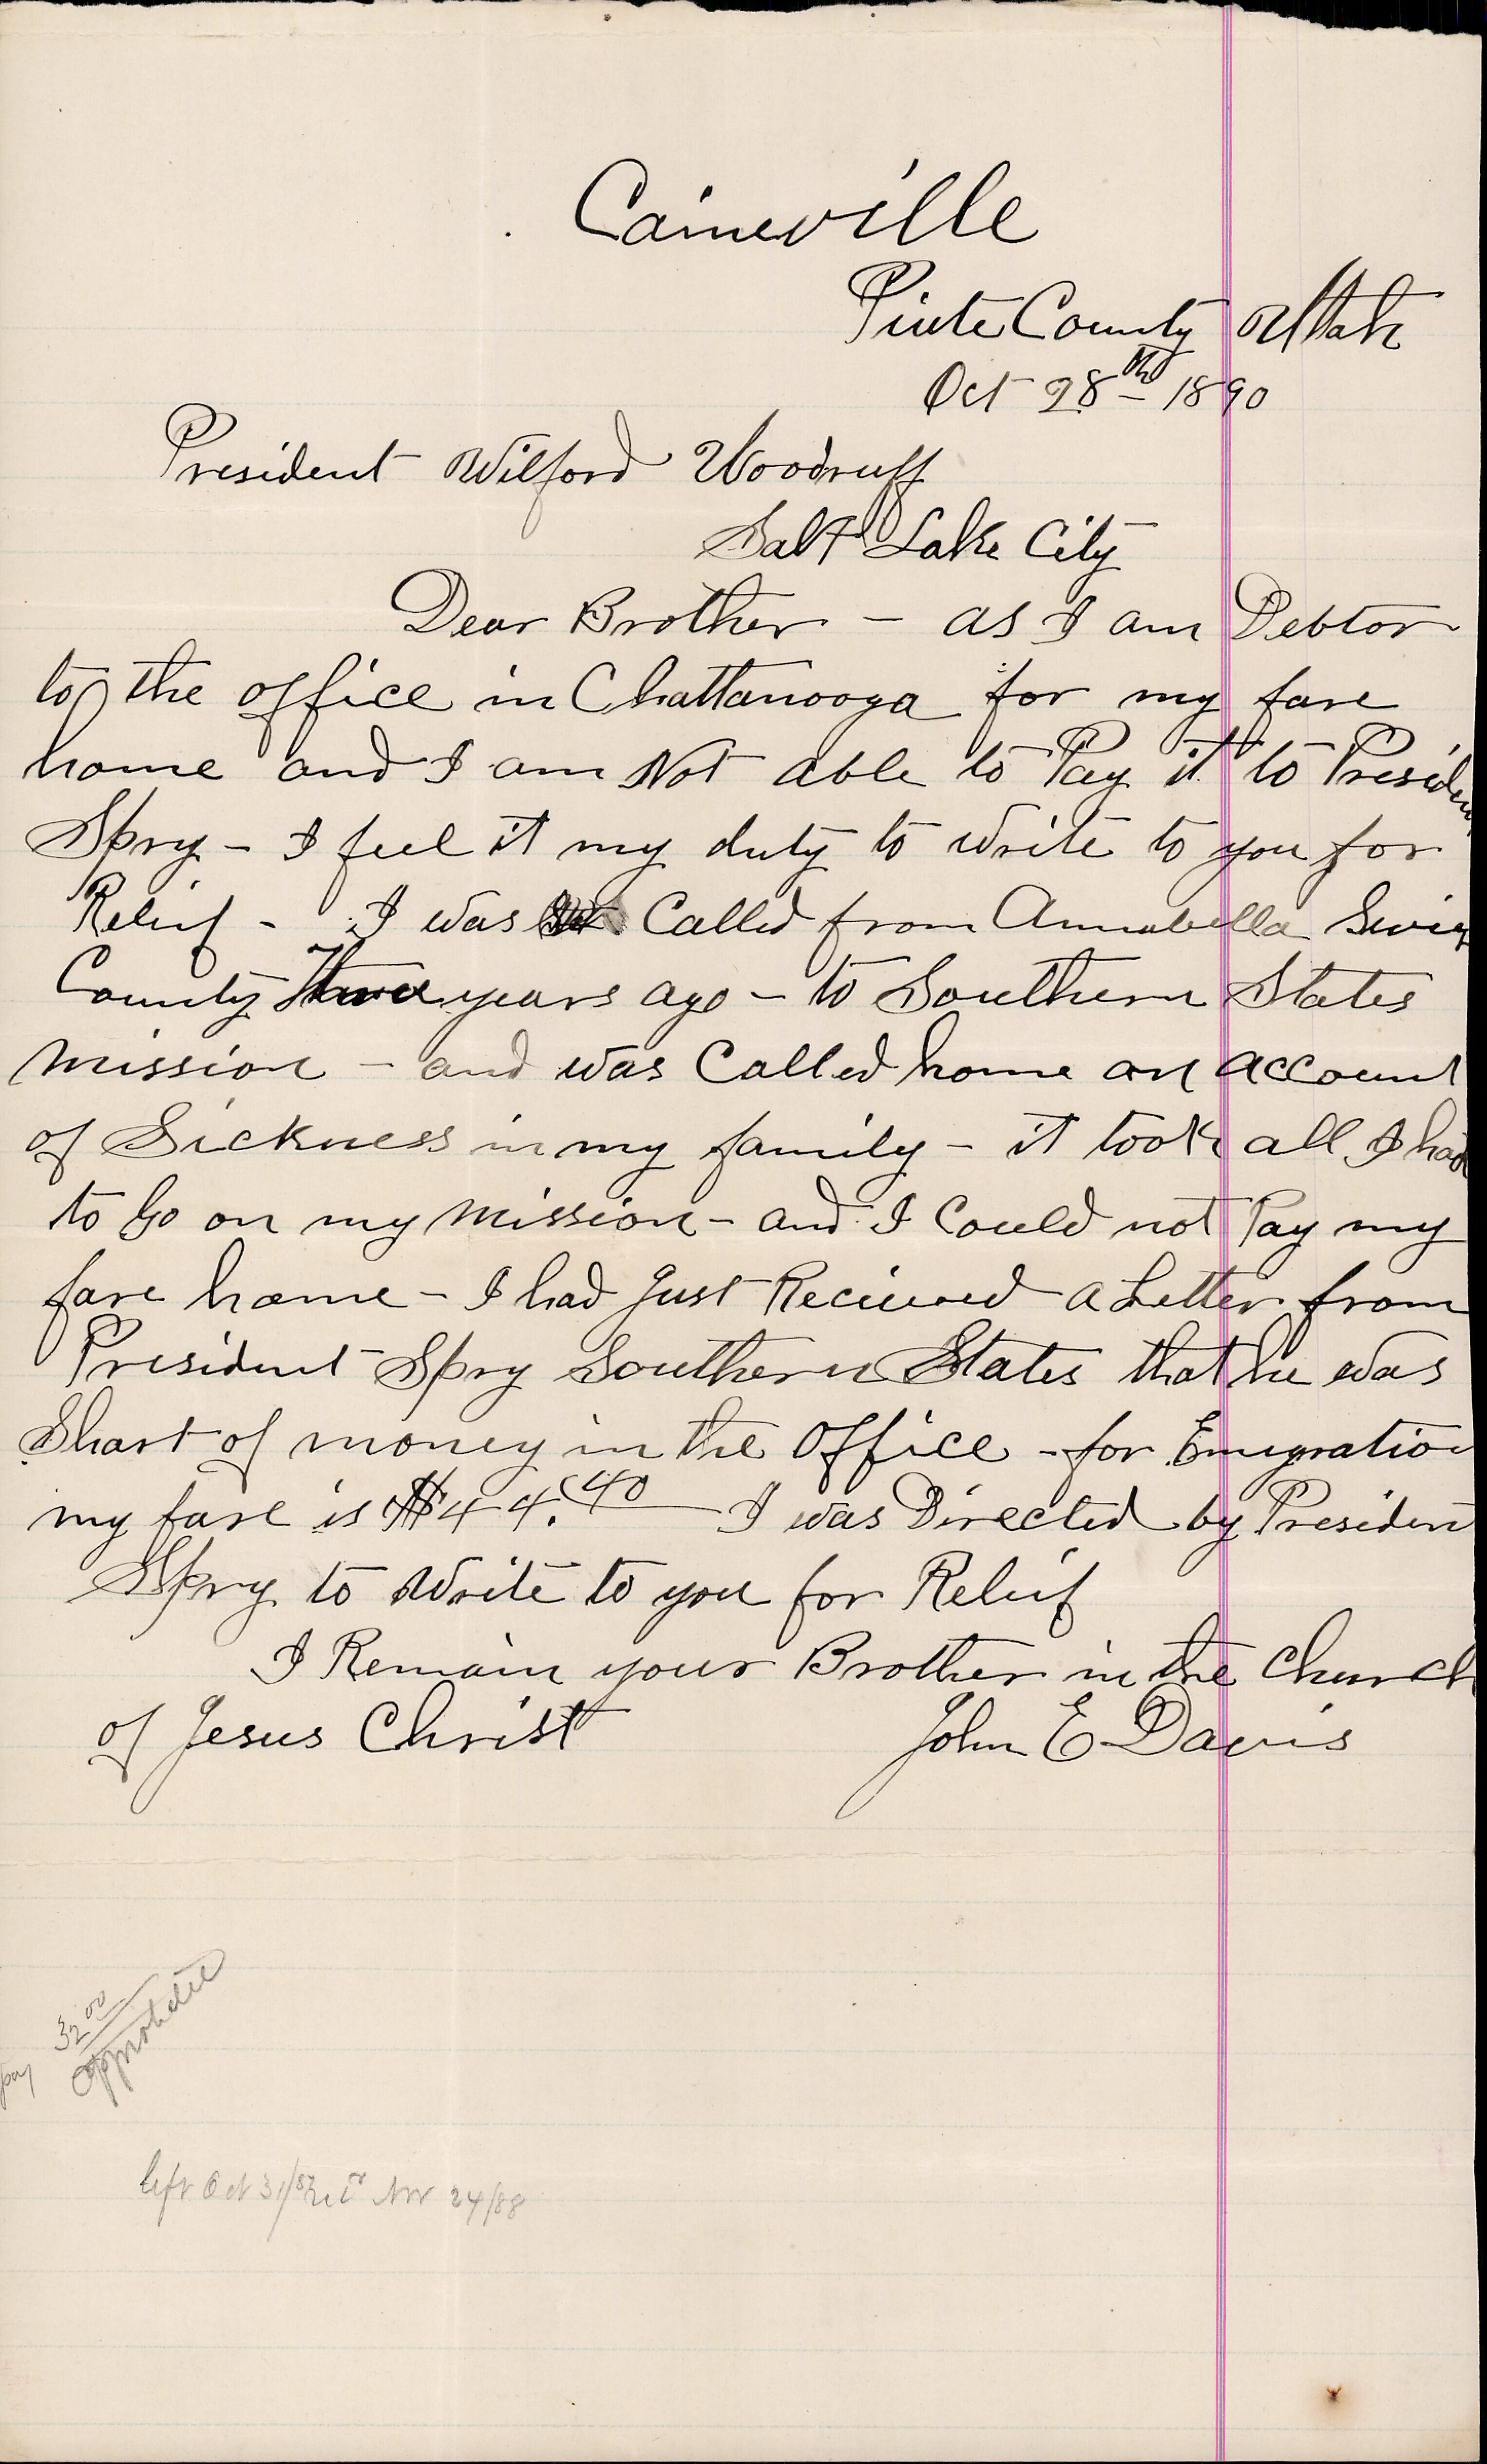 Caineville
Piute County Utah
Oct 28th 1890
President Wilford Woodruff
Salt Lake City
Dear Brother - as I am Debtor
to the office in Chattanooga for my fare
home and I am Not able to Pay it to President
Spry - I feel it my duty to write to you for
Relief - I was Called from Annabella Sevier
County Three years ago - to Southern States
Mission - and was Called home on account
of Sickness in my family - it took all I had
to Go on my Mission - and I Could not Pay my
fare home - I had Just Recieved a Letter from
President Spry Southern States that he was
Short of money in the Office - for Emigration
my fare is $44.40 I was Directed by President
Spry to Write to you for Relief
I Remain your Brother in the Church
of Jesus Christ John E Davis
pay 32.00
left Oct 31/87 Nov 24/88